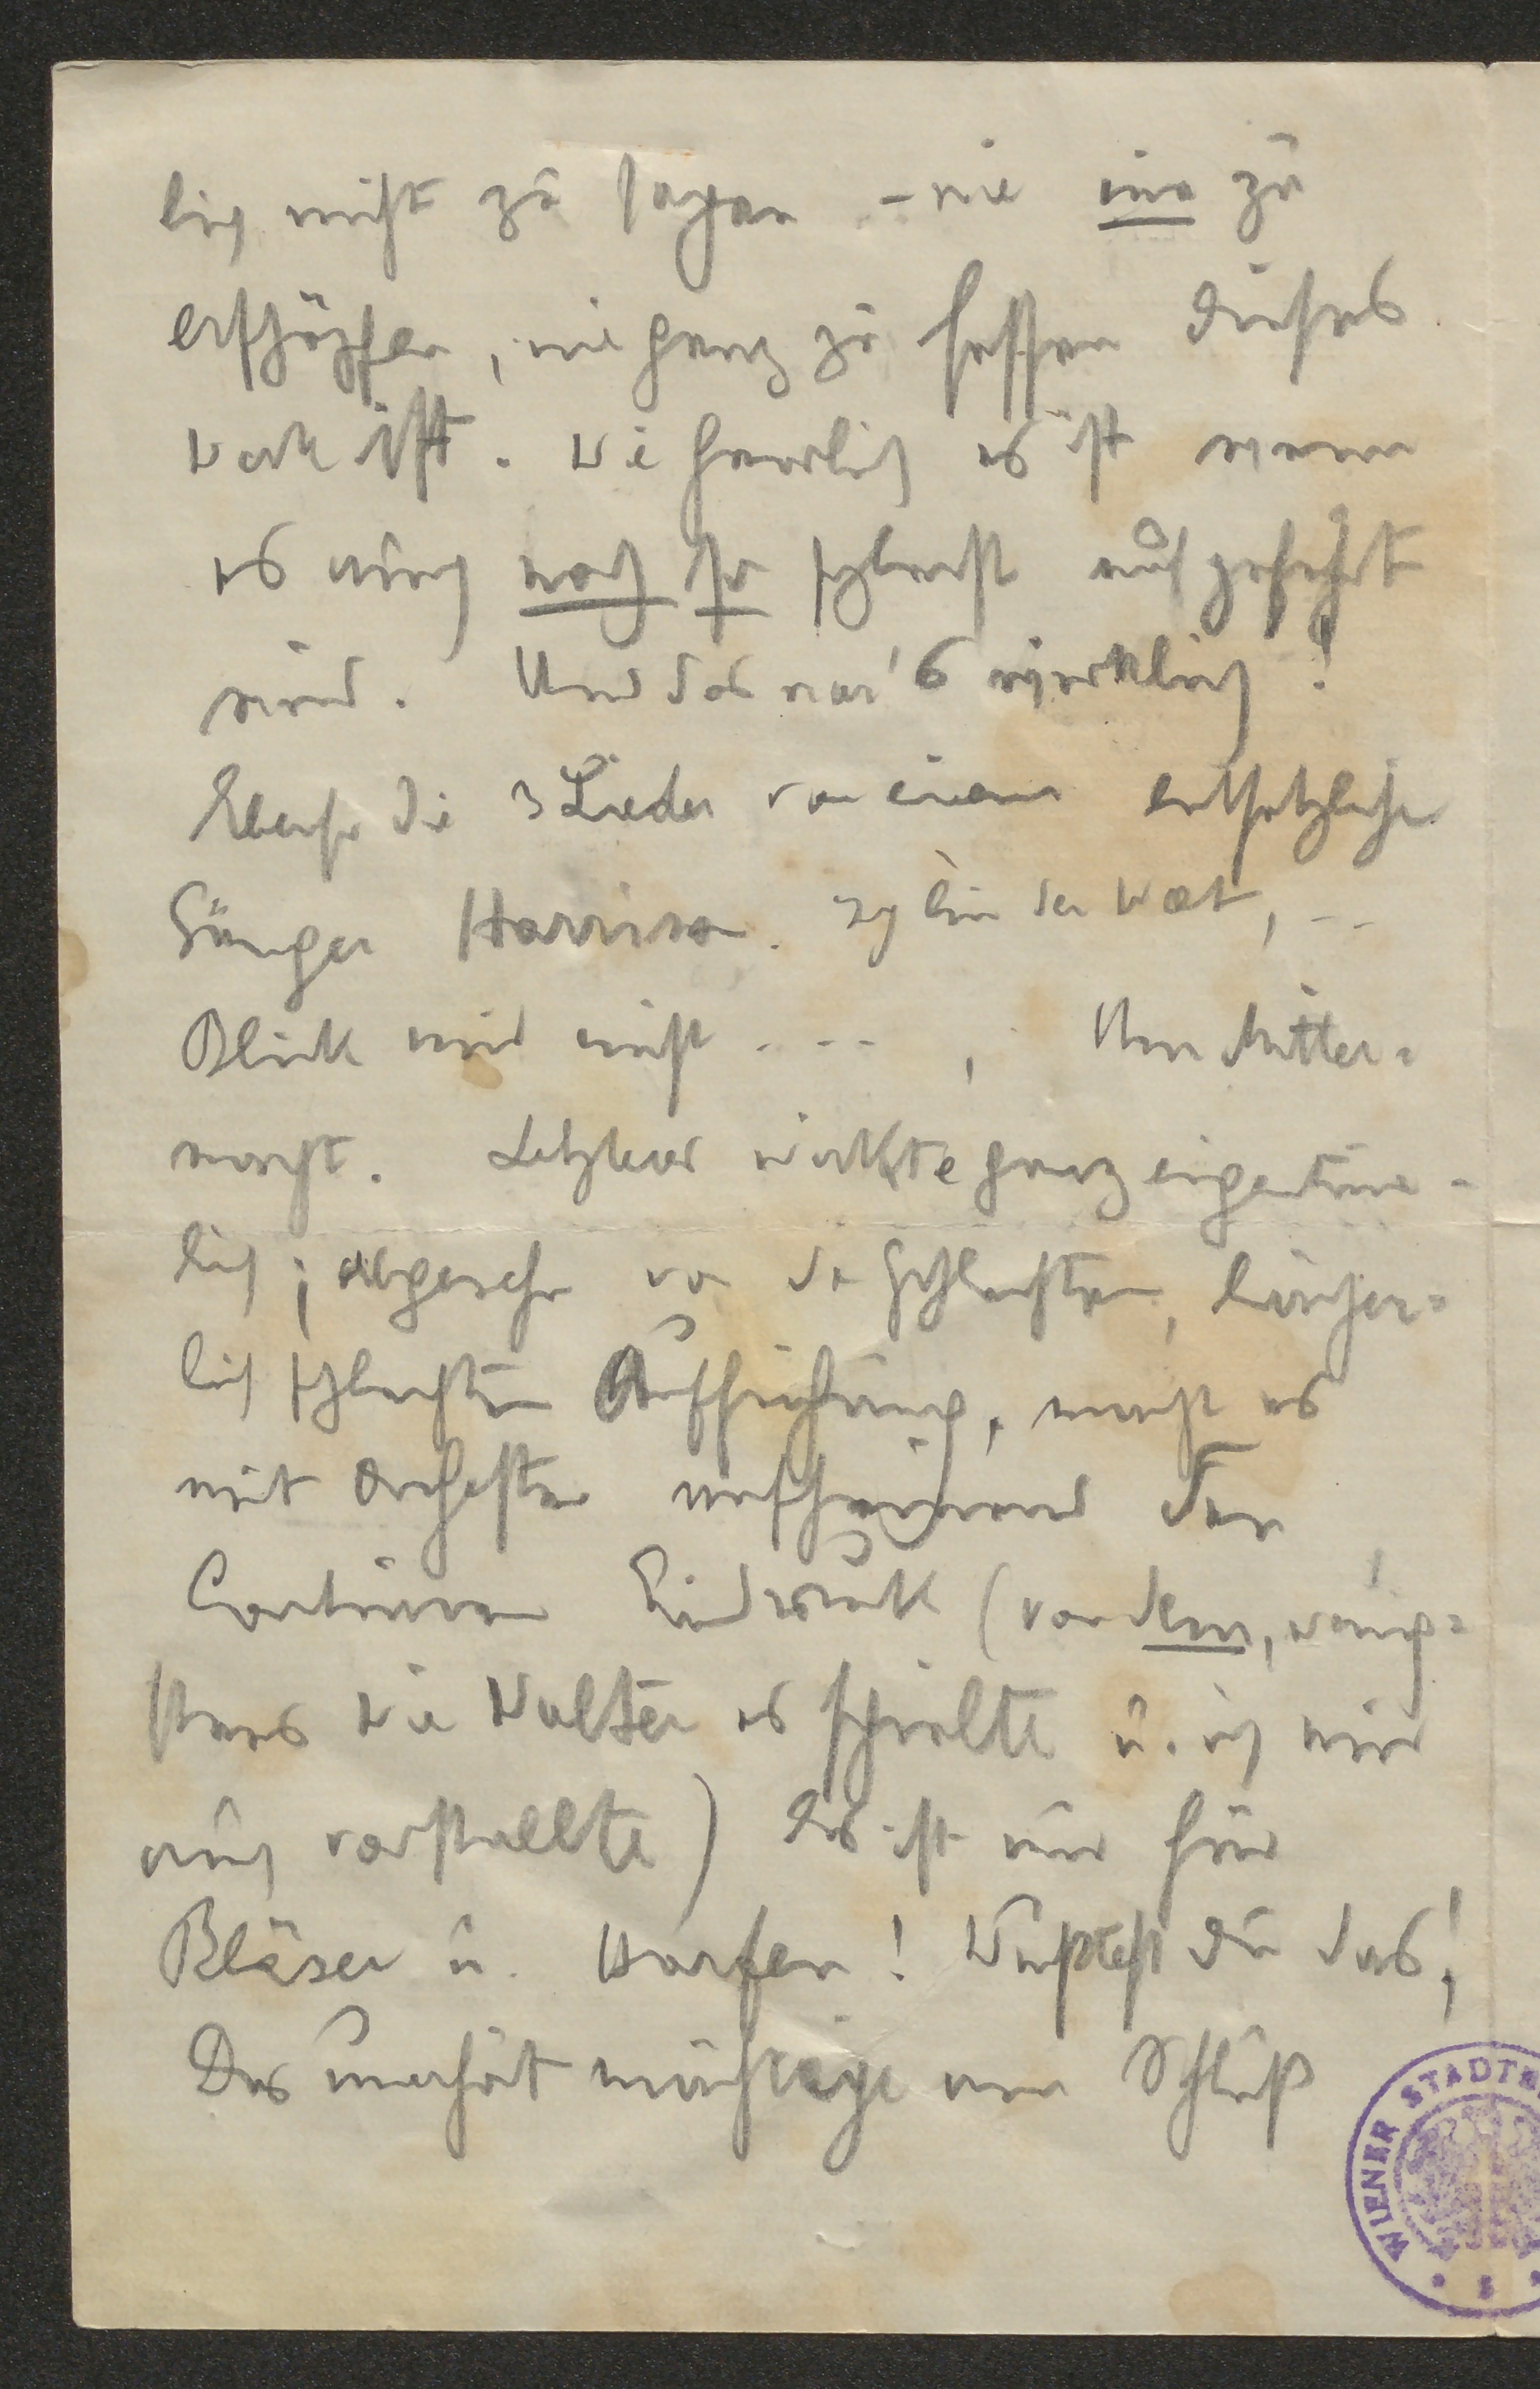 lich nicht zu sagen – wie nie zu
erschöpfen, nie ganz zu fassen dieses
Werk ist. Wie herrlich es ist wenn
es auch noch so schlecht aufgeführt
wird. Und das war's wirklich!
Ebenso die 3 Lieder von einem entsetzlichen
Sänger Harrison. Ich bin der Welt, --
Blick mir nicht ...., Um Mitter-
nacht. Letzteres wirkte ganz eigentüm-
lich; abgesehen von der schlechten, lächer-
lich schlechten Aufführung, macht es
mit Orchester den
Eindruck (von dem, wenig-
stens wie Walter es spielte u. ich mir
auch vorstellte) Es ist nur für
Bläser u. Harfen! Wußtest du das!
Das unerhört mächtige am Schluß
WIENER STADT